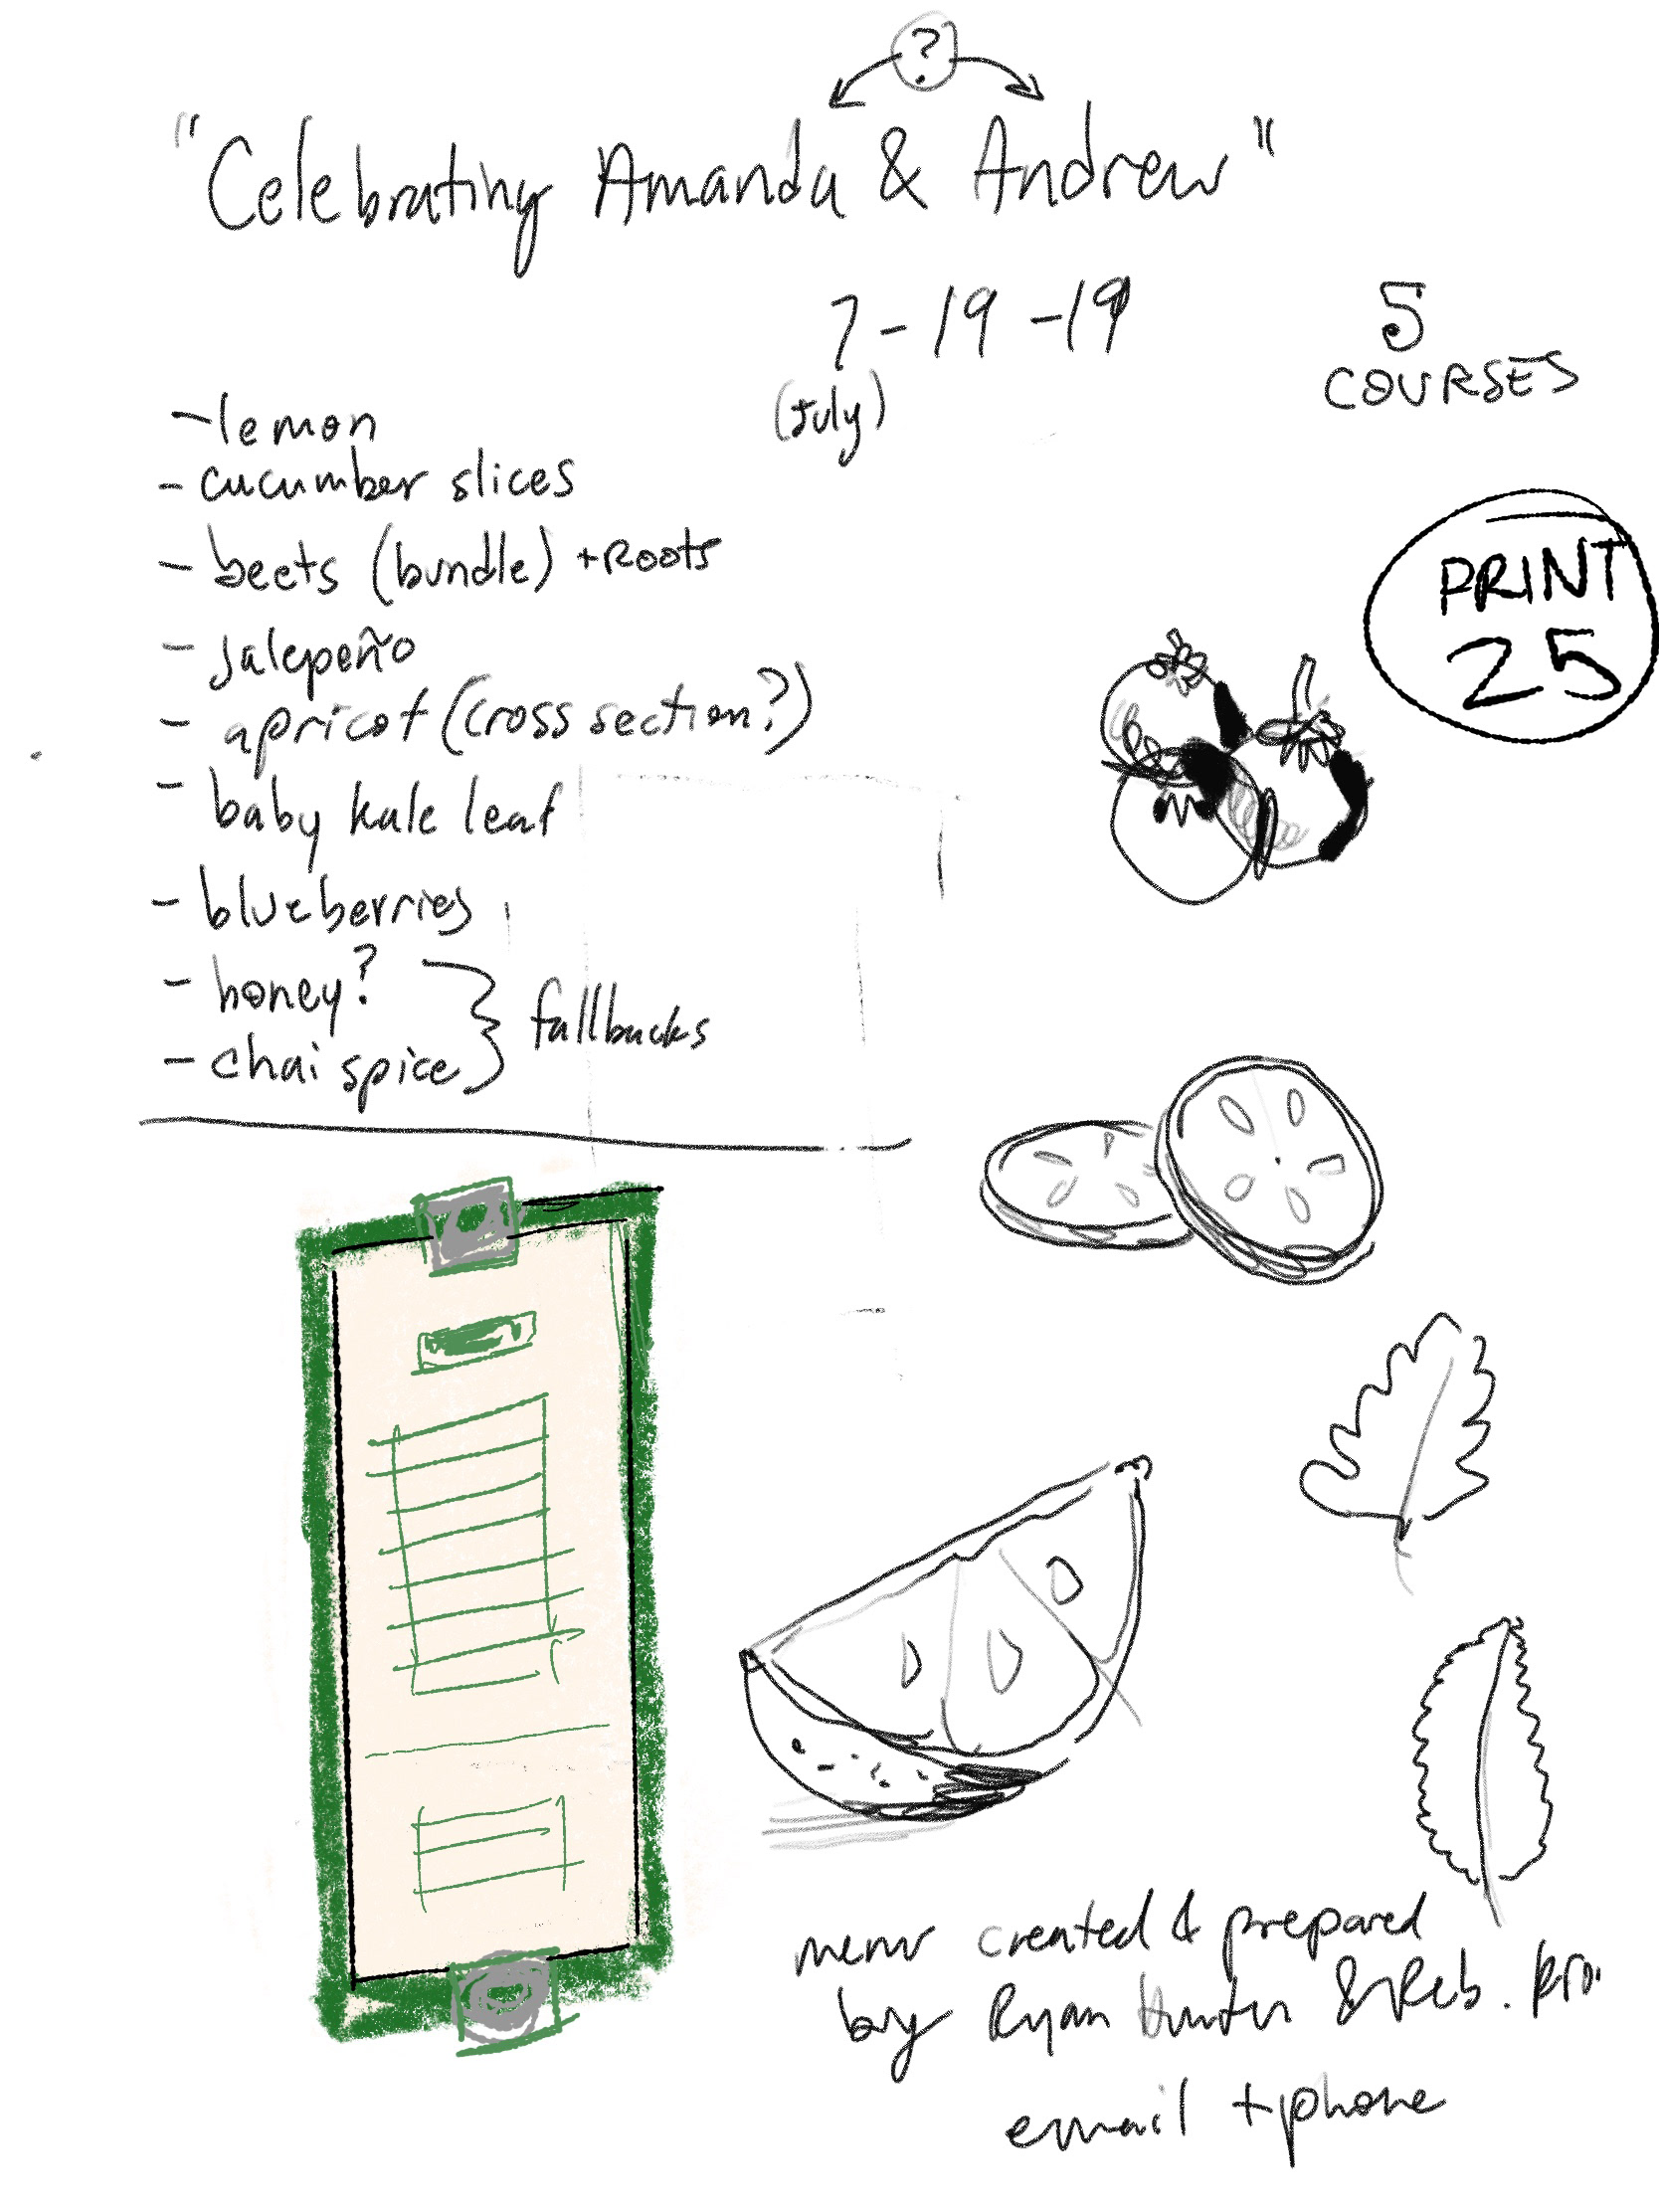 ?
"Celebrating Amanda & Andrew"
7-19-19
(July)
5
COURSES
- lemon
- cucumber slices
- beets (bundle) + Roots
- jalepeño
- apricot (cross section?)
- baby kale leaf
- blueberries
- honey?
- chai spice
fallbacks
PRINT
25
menu created & prepared
by Ryan Hunter & Reb.
email + phone